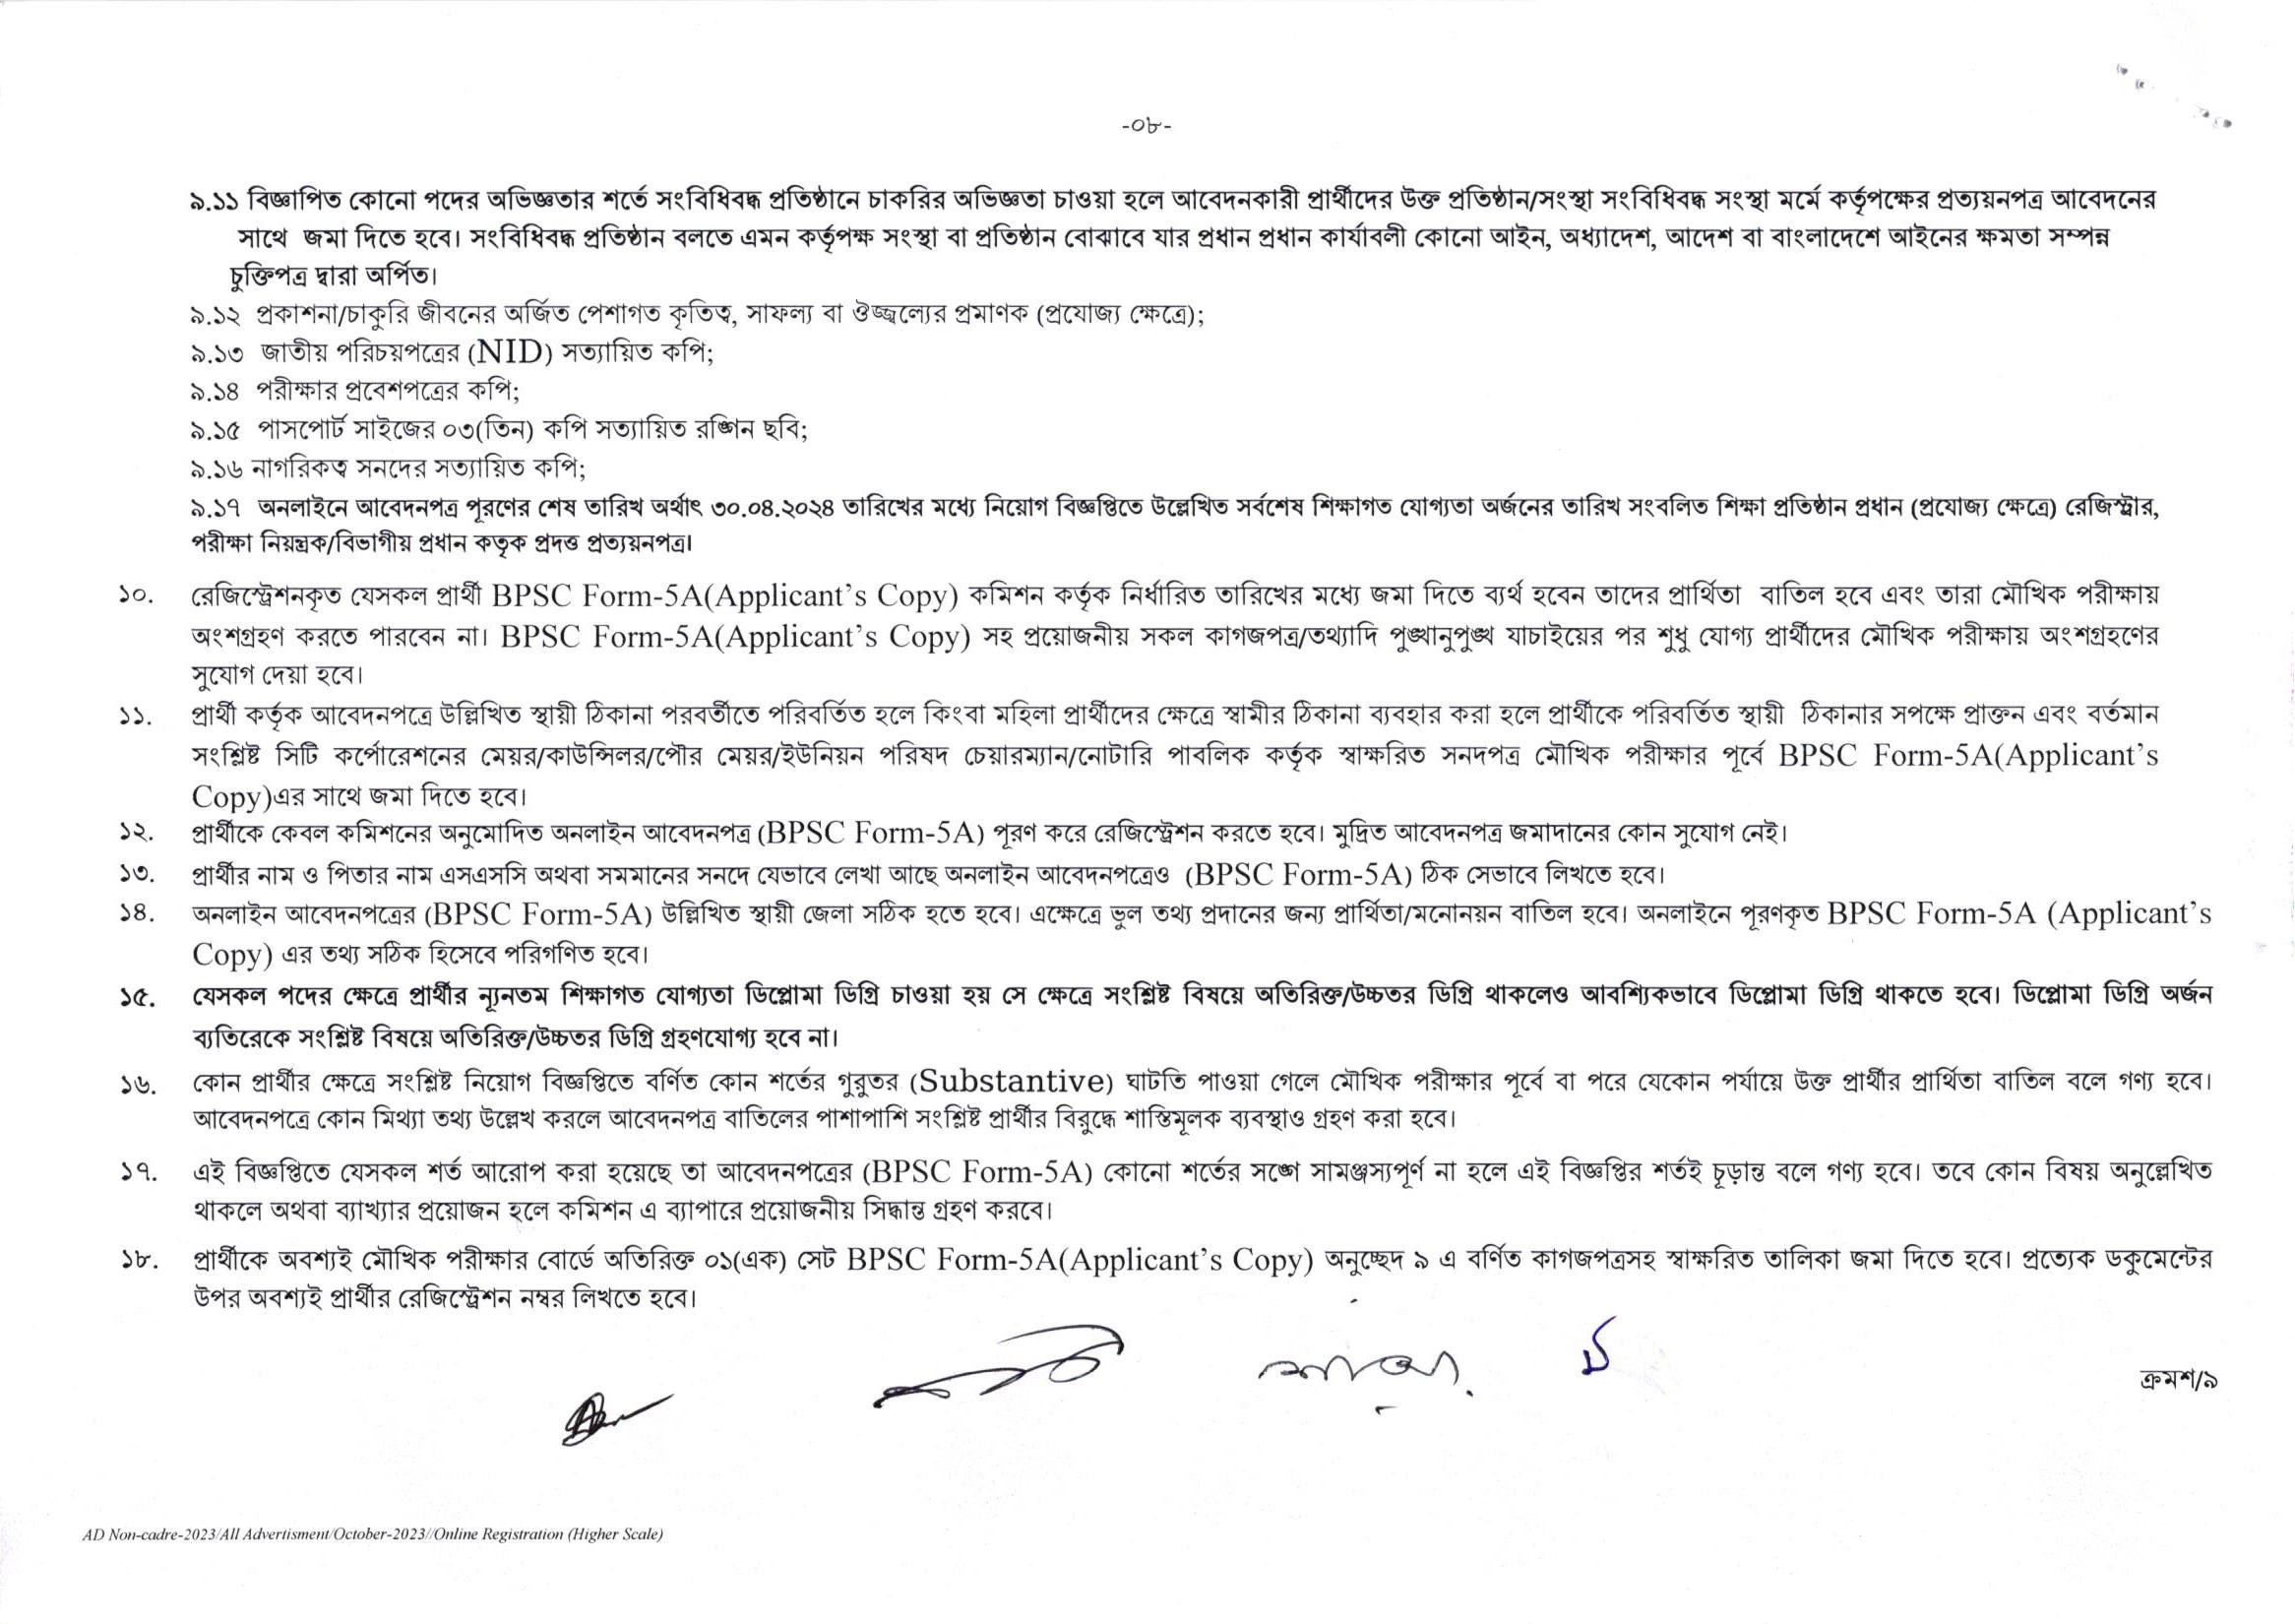 -০৮-
৯.১১ বিজ্ঞাপিত কোনো পদের অভিজ্ঞতার শর্তে সংবিধিবদ্ধ প্রতিষ্ঠানে চাকরির অভিজ্ঞতা চাওয়া হলে আবেদনকারী প্রার্থীদের উক্ত প্রতিষ্ঠান/সংস্থা সংবিধিবদ্ধ সংস্থা মর্মে কর্তৃপক্ষের প্রত্যয়নপত্র আবেদনের
সাথে জমা দিতে হবে। সংবিধিবদ্ধ প্রতিষ্ঠান বলতে এমন কর্তৃপক্ষ সংস্থা বা প্রতিষ্ঠান বোঝাবে যার প্রধান প্রধান কার্যাবলী কোনো আইন, অধ্যাদেশ, আদেশ বা বাংলাদেশে আইনের ক্ষমতা সম্পন্ন
চুক্তিপত্র দ্বারা অর্পিত।
৯.১২ প্রকাশনা/চাকুরি জীবনের অর্জিত পেশাগত কৃতিত্ব, সাফল্য বা ঔজ্জ্বল্যের প্রমাণক (প্রযোজ্য ক্ষেত্রে);
৯.১৩ জাতীয় পরিচয়পত্রের (NID) সত্যায়িত কপি;
৯.১৪ পরীক্ষার প্রবেশপত্রের কপি;
৯.১৫ পাসপোর্ট সাইজের ০৩(তিন) কপি সত্যায়িত রঙ্গিন ছবি;
৯.১৬ নাগরিকত্ব সনদের সত্যায়িত কপি;
৯.১৭ অনলাইনে আবেদনপত্র পূরণের শেষ তারিখ অর্থাৎ ৩০.০৪.২০২৪ তারিখের মধ্যে নিয়োগ বিজ্ঞপ্তিতে উল্লেখিত সর্বশেষ শিক্ষাগত যোগ্যতা অর্জনের তারিখ সংবলিত শিক্ষা প্রতিষ্ঠান প্রধান (প্রযোজ্য ক্ষেত্রে) রেজিস্ট্রার,
পরীক্ষা নিয়ন্ত্রক/বিভাগীয় প্রধান কতৃক প্রদত্ত প্রত্যয়নপত্র।
১০. রেজিস্ট্রেশনকৃত যেসকল প্রার্থী BPSC Form-5A(Applicant's Copy) কমিশন কর্তৃক নির্ধারিত তারিখের মধ্যে জমা দিতে ব্যর্থ হবেন তাদের প্রার্থিতা বাতিল হবে এবং তারা মৌখিক পরীক্ষায়
অংশগ্রহণ করতে পারবেন না। BPSC Form-5A(Applicant's Copy) সহ প্রয়োজনীয় সকল কাগজপত্র/তথ্যাদি পুঙ্খানুপুঙ্খ যাচাইয়ের পর শুধু যোগ্য প্রার্থীদের মৌখিক পরীক্ষায় অংশগ্রহণের
সুযোগ দেয়া হবে।
১১. প্রার্থী কর্তৃক আবেদনপত্রে উল্লিখিত স্থায়ী ঠিকানা পরবর্তীতে পরিবর্তিত হলে কিংবা মহিলা প্রার্থীদের ক্ষেত্রে স্বামীর ঠিকানা ব্যবহার করা হলে প্রার্থীকে পরিবর্তিত স্থায়ী ঠিকানার সপক্ষে প্রাক্তন এবং বর্তমান
সংশ্লিষ্ট সিটি কর্পোরেশনের মেয়র/কাউন্সিলর/পৌর মেয়র/ইউনিয়ন পরিষদ চেয়ারম্যান/নোটারি পাবলিক কর্তৃক স্বাক্ষরিত সনদপত্র মৌখিক পরীক্ষার পূর্বে BPSC Form-5A(Applicant's
Copy)এর সাথে জমা দিতে হবে।
১২. প্রার্থীকে কেবল কমিশনের অনুমোদিত অনলাইন আবেদনপত্র (BPSC Form-5A) পূরণ করে রেজিস্ট্রেশন করতে হবে। মুদ্রিত আবেদনপত্র জমাদানের কোন সুযোগ নেই।
১৩. প্রার্থীর নাম ও পিতার নাম এসএসসি অথবা সমমানের সনদে যেভাবে লেখা আছে অনলাইন আবেদনপত্রেও (BPSC Form-5A) ঠিক সেভাবে লিখতে হবে।
১৪. অনলাইন আবেদনপত্রের (BPSC Form-5A) উল্লিখিত স্থায়ী জেলা সঠিক হতে হবে। এক্ষেত্রে ভুল তথ্য প্রদানের জন্য প্রার্থিতা/মনোনয়ন বাতিল হবে। অনলাইনে পূরণকৃত BPSC Form-5A (Applicant's
Copy) এর তথ্য সঠিক হিসেবে পরিগণিত হবে।
১৫. যেসকল পদের ক্ষেত্রে প্রার্থীর ন্যূনতম শিক্ষাগত যোগ্যতা ডিপ্লোমা ডিগ্রি চাওয়া হয় সে ক্ষেত্রে সংশ্লিষ্ট বিষয়ে অতিরিক্ত/উচ্চতর ডিগ্রি থাকলেও আবশ্যিকভাবে ডিপ্লোমা ডিগ্রি থাকতে হবে। ডিপ্লোমা ডিগ্রি অর্জন
ব্যতিরেকে সংশ্লিষ্ট বিষয়ে অতিরিক্ত/উচ্চতর ডিগ্রি গ্রহণযোগ্য হবে না।
১৬. কোন প্রার্থীর ক্ষেত্রে সংশ্লিষ্ট নিয়োগ বিজ্ঞপ্তিতে বর্ণিত কোন শর্তের গুরুতর (Substantive) ঘাটতি পাওয়া গেলে মৌখিক পরীক্ষার পূর্বে বা পরে যেকোন পর্যায়ে উক্ত প্রার্থীর প্রার্থিতা বাতিল বলে গণ্য হবে।
আবেদনপত্রে কোন মিথ্যা তথ্য উল্লেখ করলে আবেদনপত্র বাতিলের পাশাপাশি সংশ্লিষ্ট প্রার্থীর বিরুদ্ধে শাস্তিমূলক ব্যবস্থাও গ্রহণ করা হবে।
১৭. এই বিজ্ঞপ্তিতে যেসকল শর্ত আরোপ করা হয়েছে তা আবেদনপত্রের (BPSC Form-5A) কোনো শর্তের সঙ্গে সামঞ্জস্যপূর্ণ না হলে এই বিজ্ঞপ্তির শর্তই চূড়ান্ত বলে গণ্য হবে। তবে কোন বিষয় অনুল্লেখিত
থাকলে অথবা ব্যাখ্যার প্রয়োজন হলে কমিশন এ ব্যাপারে প্রয়োজনীয় সিদ্ধান্ত গ্রহণ করবে।
১৮. প্রার্থীকে অবশ্যই মৌখিক পরীক্ষার বোর্ডে অতিরিক্ত ০১(এক) সেট BPSC Form-5A(Applicant's Copy) অনুচ্ছেদ ৯ এ বর্ণিত কাগজপত্রসহ স্বাক্ষরিত তালিকা জমা দিতে হবে। প্রত্যেক ডকুমেন্টের
উপর অবশ্যই প্রার্থীর রেজিস্ট্রেশন নম্বর লিখতে হবে।
ক্রমশ/৯
AD Non-cadre-2023/All Advertisment/October-2023//Online Registration (Higher Scale)